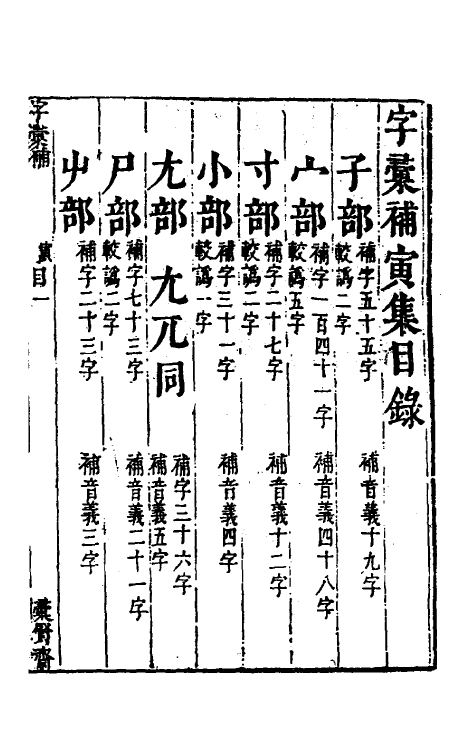 字彙補寅集目錄
子部 補字五十五字 補音義十九字
較譌二字
宀部 補字一百四十一字 補音義四十八字
較譌五字
寸部 補字二十七字 補音義十二字
較譌二字
小部 補字三十一字 補音義四字
較譌一字
尢部 尤兀同 補字三十六字
補音義五字
尸部 補字七十三字 補音義二十一字
較譌二字
屮部 補字二十三字 補音義三字
字彙補
寅目一
彙賢齋